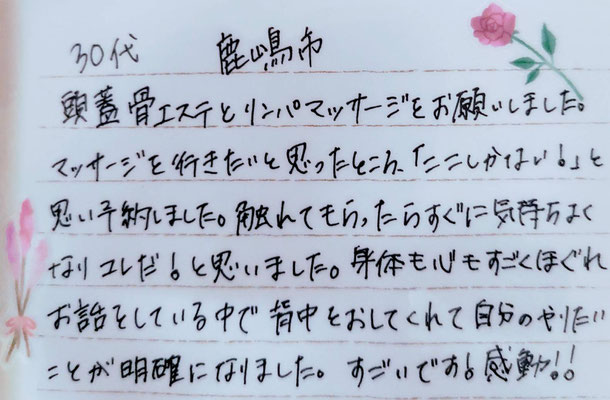 30代 鹿嶋市
頭蓋骨エステとリンパマッサージをお願いしました。
マッサージを行きたいと思ったところ、「ここしかない!」と
思い予約しました。触れてもらったらすぐに気持ちよく
なりコレだ!と思いました。身体も心もすごくほぐれ
お話をしている中で背中をおしてくれて自分のやりたい
ことが明確になりました。すごいです!感動!!